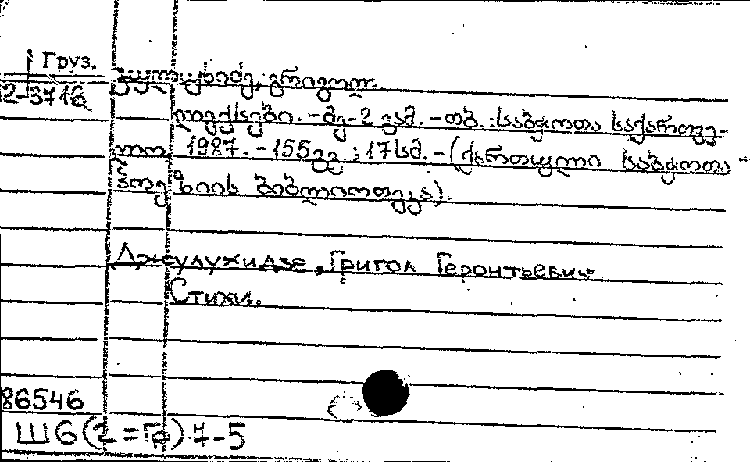 Груз.
2-3716
ჯულუხიძე, გრიგოლ.
ლექსები. - მე-2 გამ. - თბ. : საბჭოთა საქართვე-
ლო, 1987. - 155გვ ; 17სმ. - (ქართული საბჭოთა
პოეზიის ბიბლიოთეკა).
Джулухидзе, Григол Геронтьевич
Стихи.
86546
Ш6(2=Гр)7-5